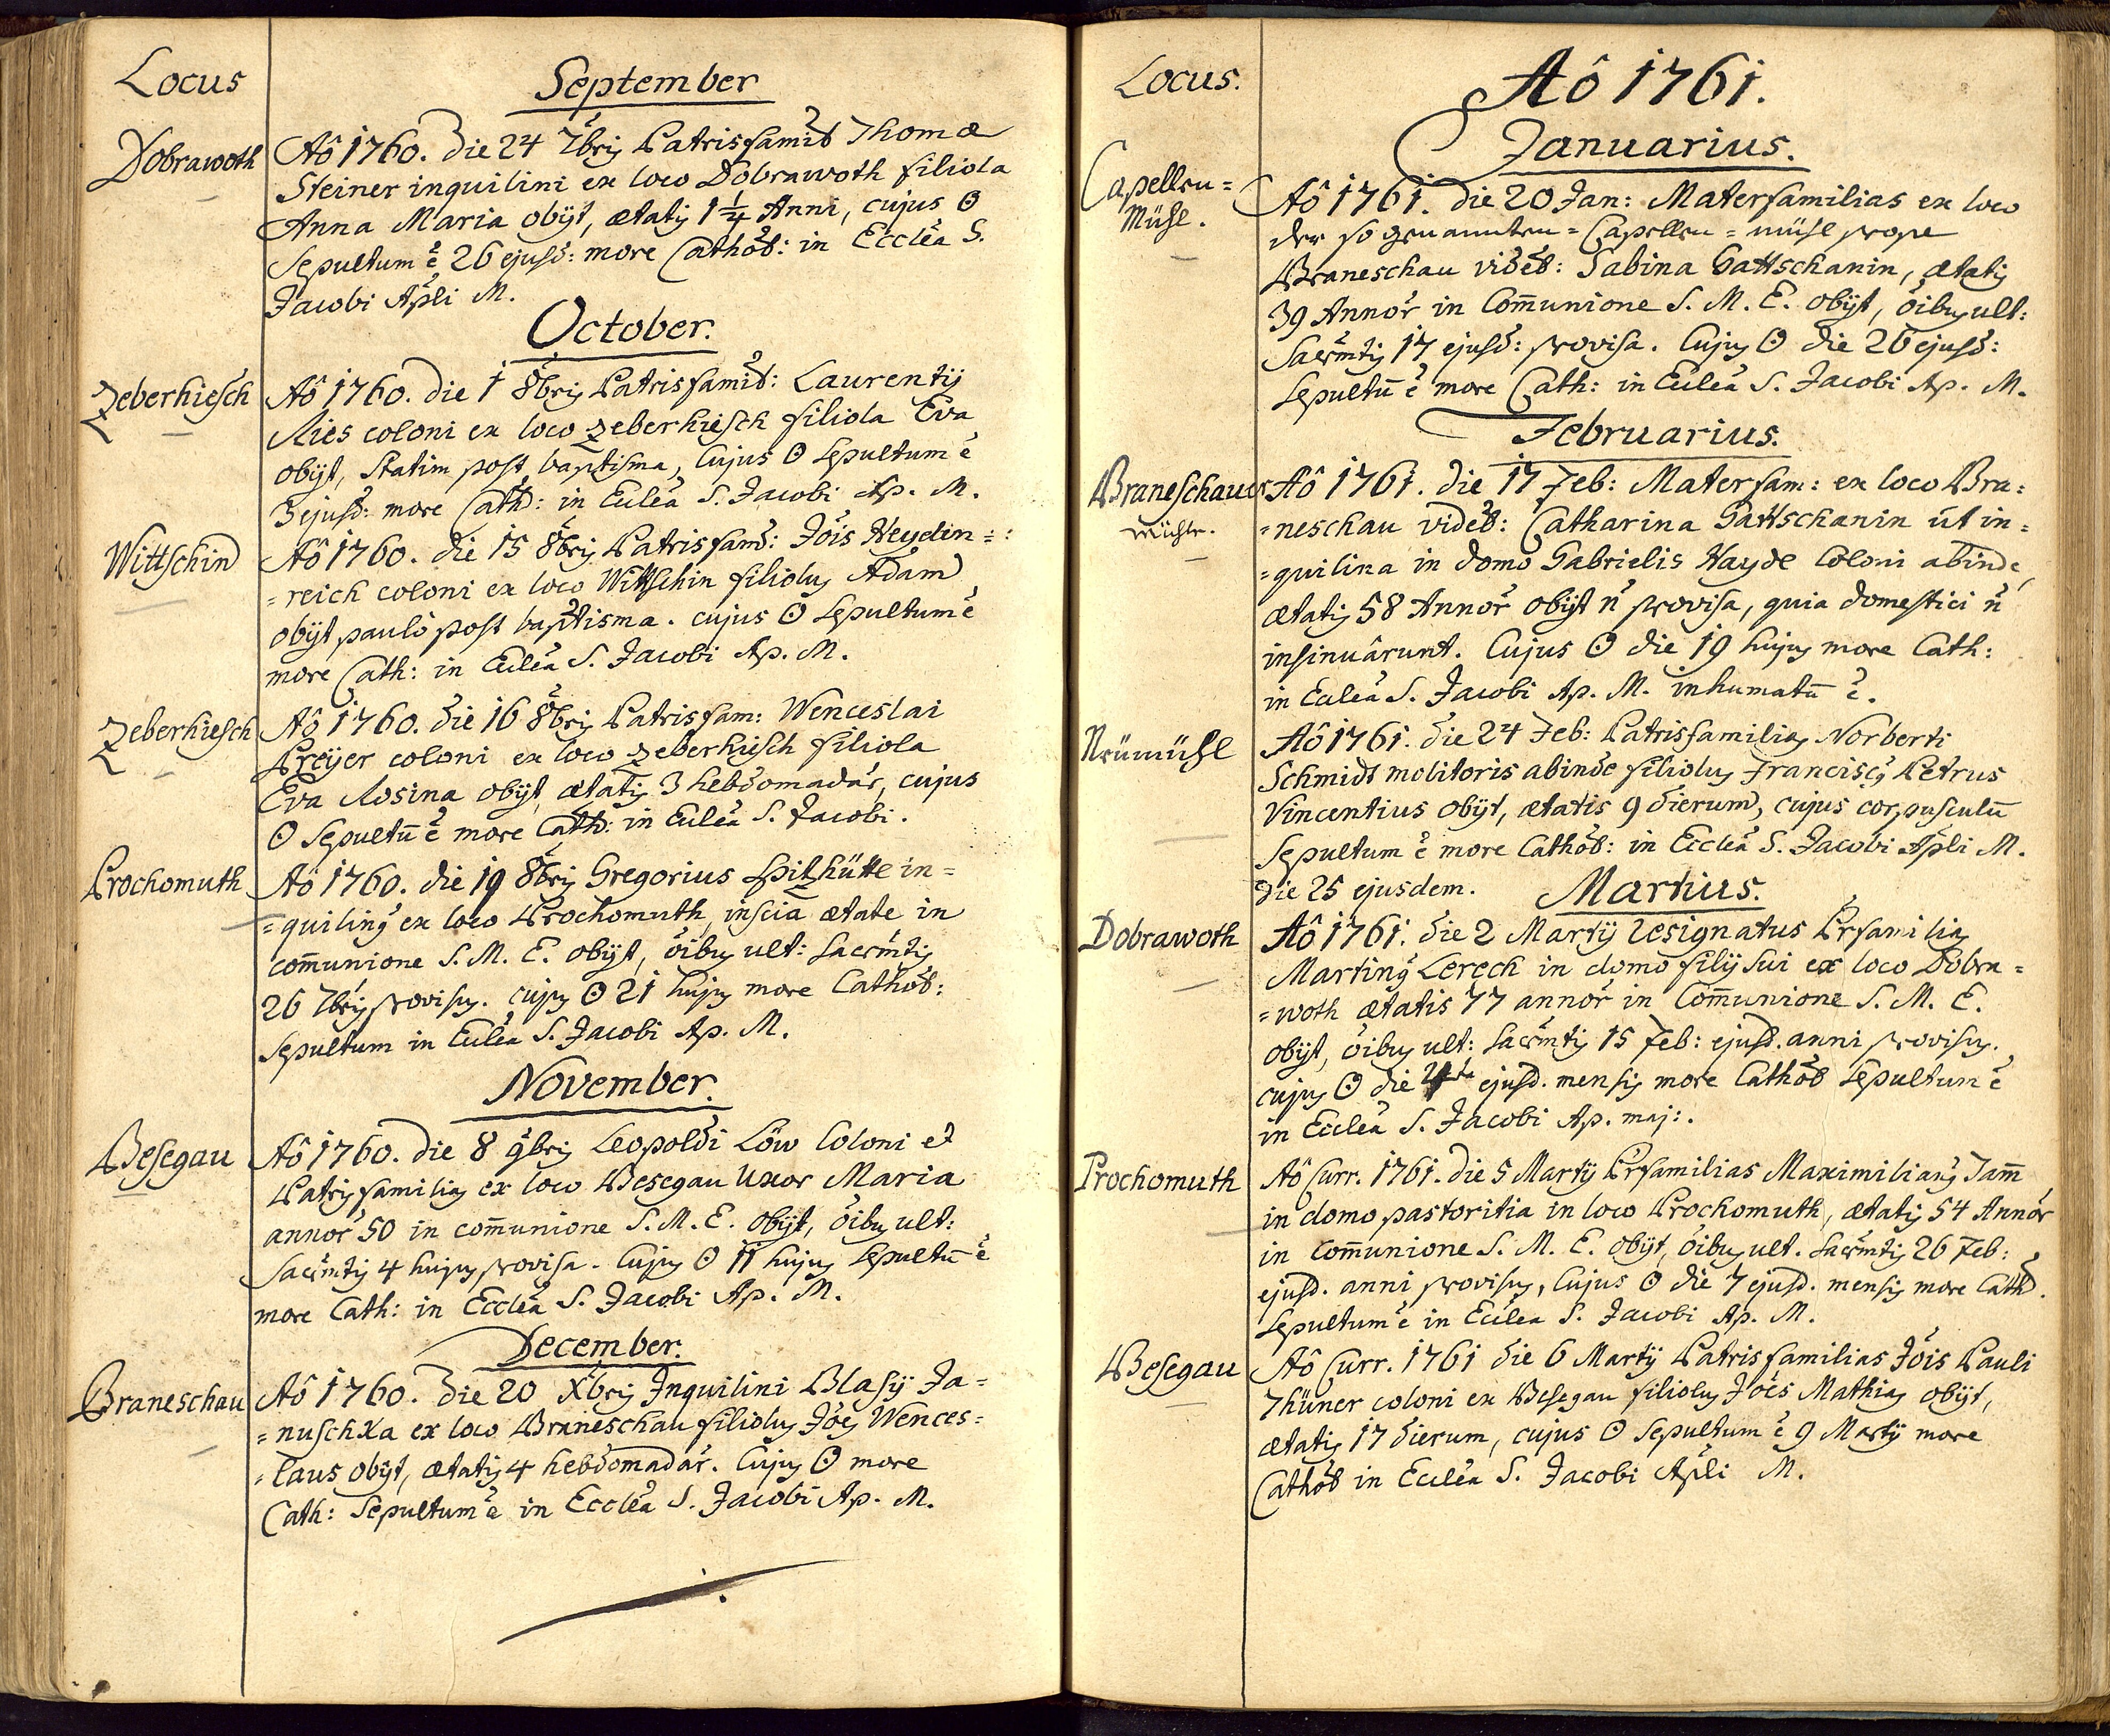 Locus
September
Dobrawoth
Aô 1760. die 24 7bris Patrisfamil Thomæ
Steiner inquilini ex loco Dobrawoth filiola
Anna Maria obijt, ætatis 1 1/4 Anni, cujus ʘ
Sepultum ē 26 ejusd: more Cathol: in Eccleā S.
Jacobi Apli M.
October.
Zeberhiesch
Aô 1760. die 1 8bris Patrisfamil: Laurentij
Ries coloni ex loco Zeberhiesch filiola Eva
obijt, statim post baptisma, cujus ʘ sepultum ē
3 ejusd: more Cath: in Eccleā S. Jacobi Ap. M.
Wittschin
Aô 1760. die 15 8bris Patrisfam: Jois Heyden=
=reich coloni ex loco Wittschin filiolus Adam
obijt paulò post baptisma. cujus ʘ sepultum ē
more Cath: in Eccleā S. Jacobi Ap. M.
Zeberhiesch
Aô 1760. die 16 8bris Patrisfam: Wenceslai
Preyer coloni ex loco Zeberhiesch filiola
Eva Rosina obijt, ætatis 3 hebdomadar, cujus
ʘ sepultū ē more Cath: in Eccleā S. Jacobi.
Prochomuth
Aô 1760. die 19 8bris Gregorius Spitzhütte in=
=quilin9 ex loco Prochomuth, insciā ætate in
com̄unione S. M. E. obijt, oībus ult: sacrmtis
26 7bris provisus. cujus ʘ 21 hujus more Cathol:
sepultum in Eccleā S. Jacobi Ap. M.
November.
Besegau
Aô 1760. die 8 9bris Leopoldi Löw Coloni et
Patrisfamilias ex loco Besegau Uxor Maria
annor 50 in com̄unione S. M. E. obijt, oībus ult:
Sacrmtis 4 hujus provisa. Cujus ʘ 11 hujus sepultū ē
more Cath: in Eccleā S. Jacobi Ap. M.
December.
Braneschau
Aô 1760. die 20 Xbris Inquilini Blasij Ja=
=nuschka ex loco Braneschau filiolus Joēs Wences=
=laus obijt, ætatis 4 hebdomadar. Cujus ʘ more
Cath: Sepultum ē in Eccleā S. Jacobi Ap. M.
Locus.
Aô 1761.
Januarius.
Capellen=
Mühl.
Aô 1761. die 20 Jan: Materfamilias ex loco
der so genannten=Capellen=mühl prope
Braneschau videl: Sabina Gattschanin, ætatis
39 Annor in Com̄unione S. M. E. obijt, oībus ult:
Sacrmtis 17 ejusd: provisa. Cujus ʘ die 26 ejusd:
sepultū ē more Cath: in Eccleā S. Jacobi Ap. M.
Februarius.
Braneschauer
Mühle.
Aô 1761. die 17 Feb: Materfam: ex loco Bra:
=neschau videl: Catharina Gattschanin ut in=
=quilina in domo Gabrielis Hayde Coloni abinde,
ætatis 58 Annor obijt ñ provisa, quia domestici ñ
insinuârunt. Cujus ʘ die 19 hujus more Cath:
in Eccleā S. Jacobi Ap. M. inhumatū ē.
Neümühl
Aô 1761. die 24 Feb: Patrisfamilias Norberti
Schmidt molitoris abinde filiolus Francisc9 Petrus
Vincentius obijt, ætatis 9 dierum, cujus corpusculū
Sepultum ē more Cathol: in Eccleā S. Jacobi Apli M.
die 25 ejusdem.
Martius.
Dobrawoth
Aô 1761. die 2 Martij resignatus Prfamilias
Martin9 Lerech in domo filij sui ex loco Dobra=
=woth ætatis 77 annor in Com̄unione S. M. E.
obijt, oībus ult: sacrmtis 15 Feb: ejusd. anni provisus.
cujus ʘ die 4ta ejusd. mensis more Cathol sepultum ē
in Eccleā S. Jacobi Ap. maj:.
Prochomuth
Aô Curr. 1761. die 5 Martij Prfamilias Maximilian9 Jam̄
in domo pastoritia in loco Prochomuth, ætatis 54 Annor
in com̄unione S. M. E. obijt, oībus ult. sacrmtis 26 Feb:
ejusd. anni provisus, Cujus ʘ die 7 ejusd. mensis more Cathol.
sepultum ē in Ecclea S. Jacobi Ap. M.
Besegau
Aô Curr. 1761 die 6 Martij Patrisfamilias Jois Pauli
Thüner coloni ex Besegau filiolus Joēs Mathias obijt,
ætatis 17 dierum, cujus ʘ sepultum ē 9 Martij more
Cathol in Eccleā S. Jacobi Apli M.